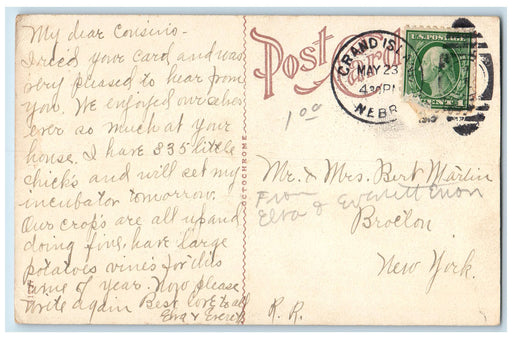 My dear Cousins -
I rec'd your card and was
very pleased to hear from
you. We enjoyed ourselves
ever so much at your
house. I have 835 little
chick's and will set my
incubator tomorrow.
Our crop's are all up and
doing fine, have large
potatoes vines for this
time of year. Now please
write again Best love to all
Elva & Everett
OCTOCHROME
Post Card
GRAND ISL
MAY 23
4 30 PM
NEBR
U.S. POSTAGE
1 00
Mr. & Mrs. Bert Martin
From
Elva & Everett Enon
Brocton
New York.
R. R.